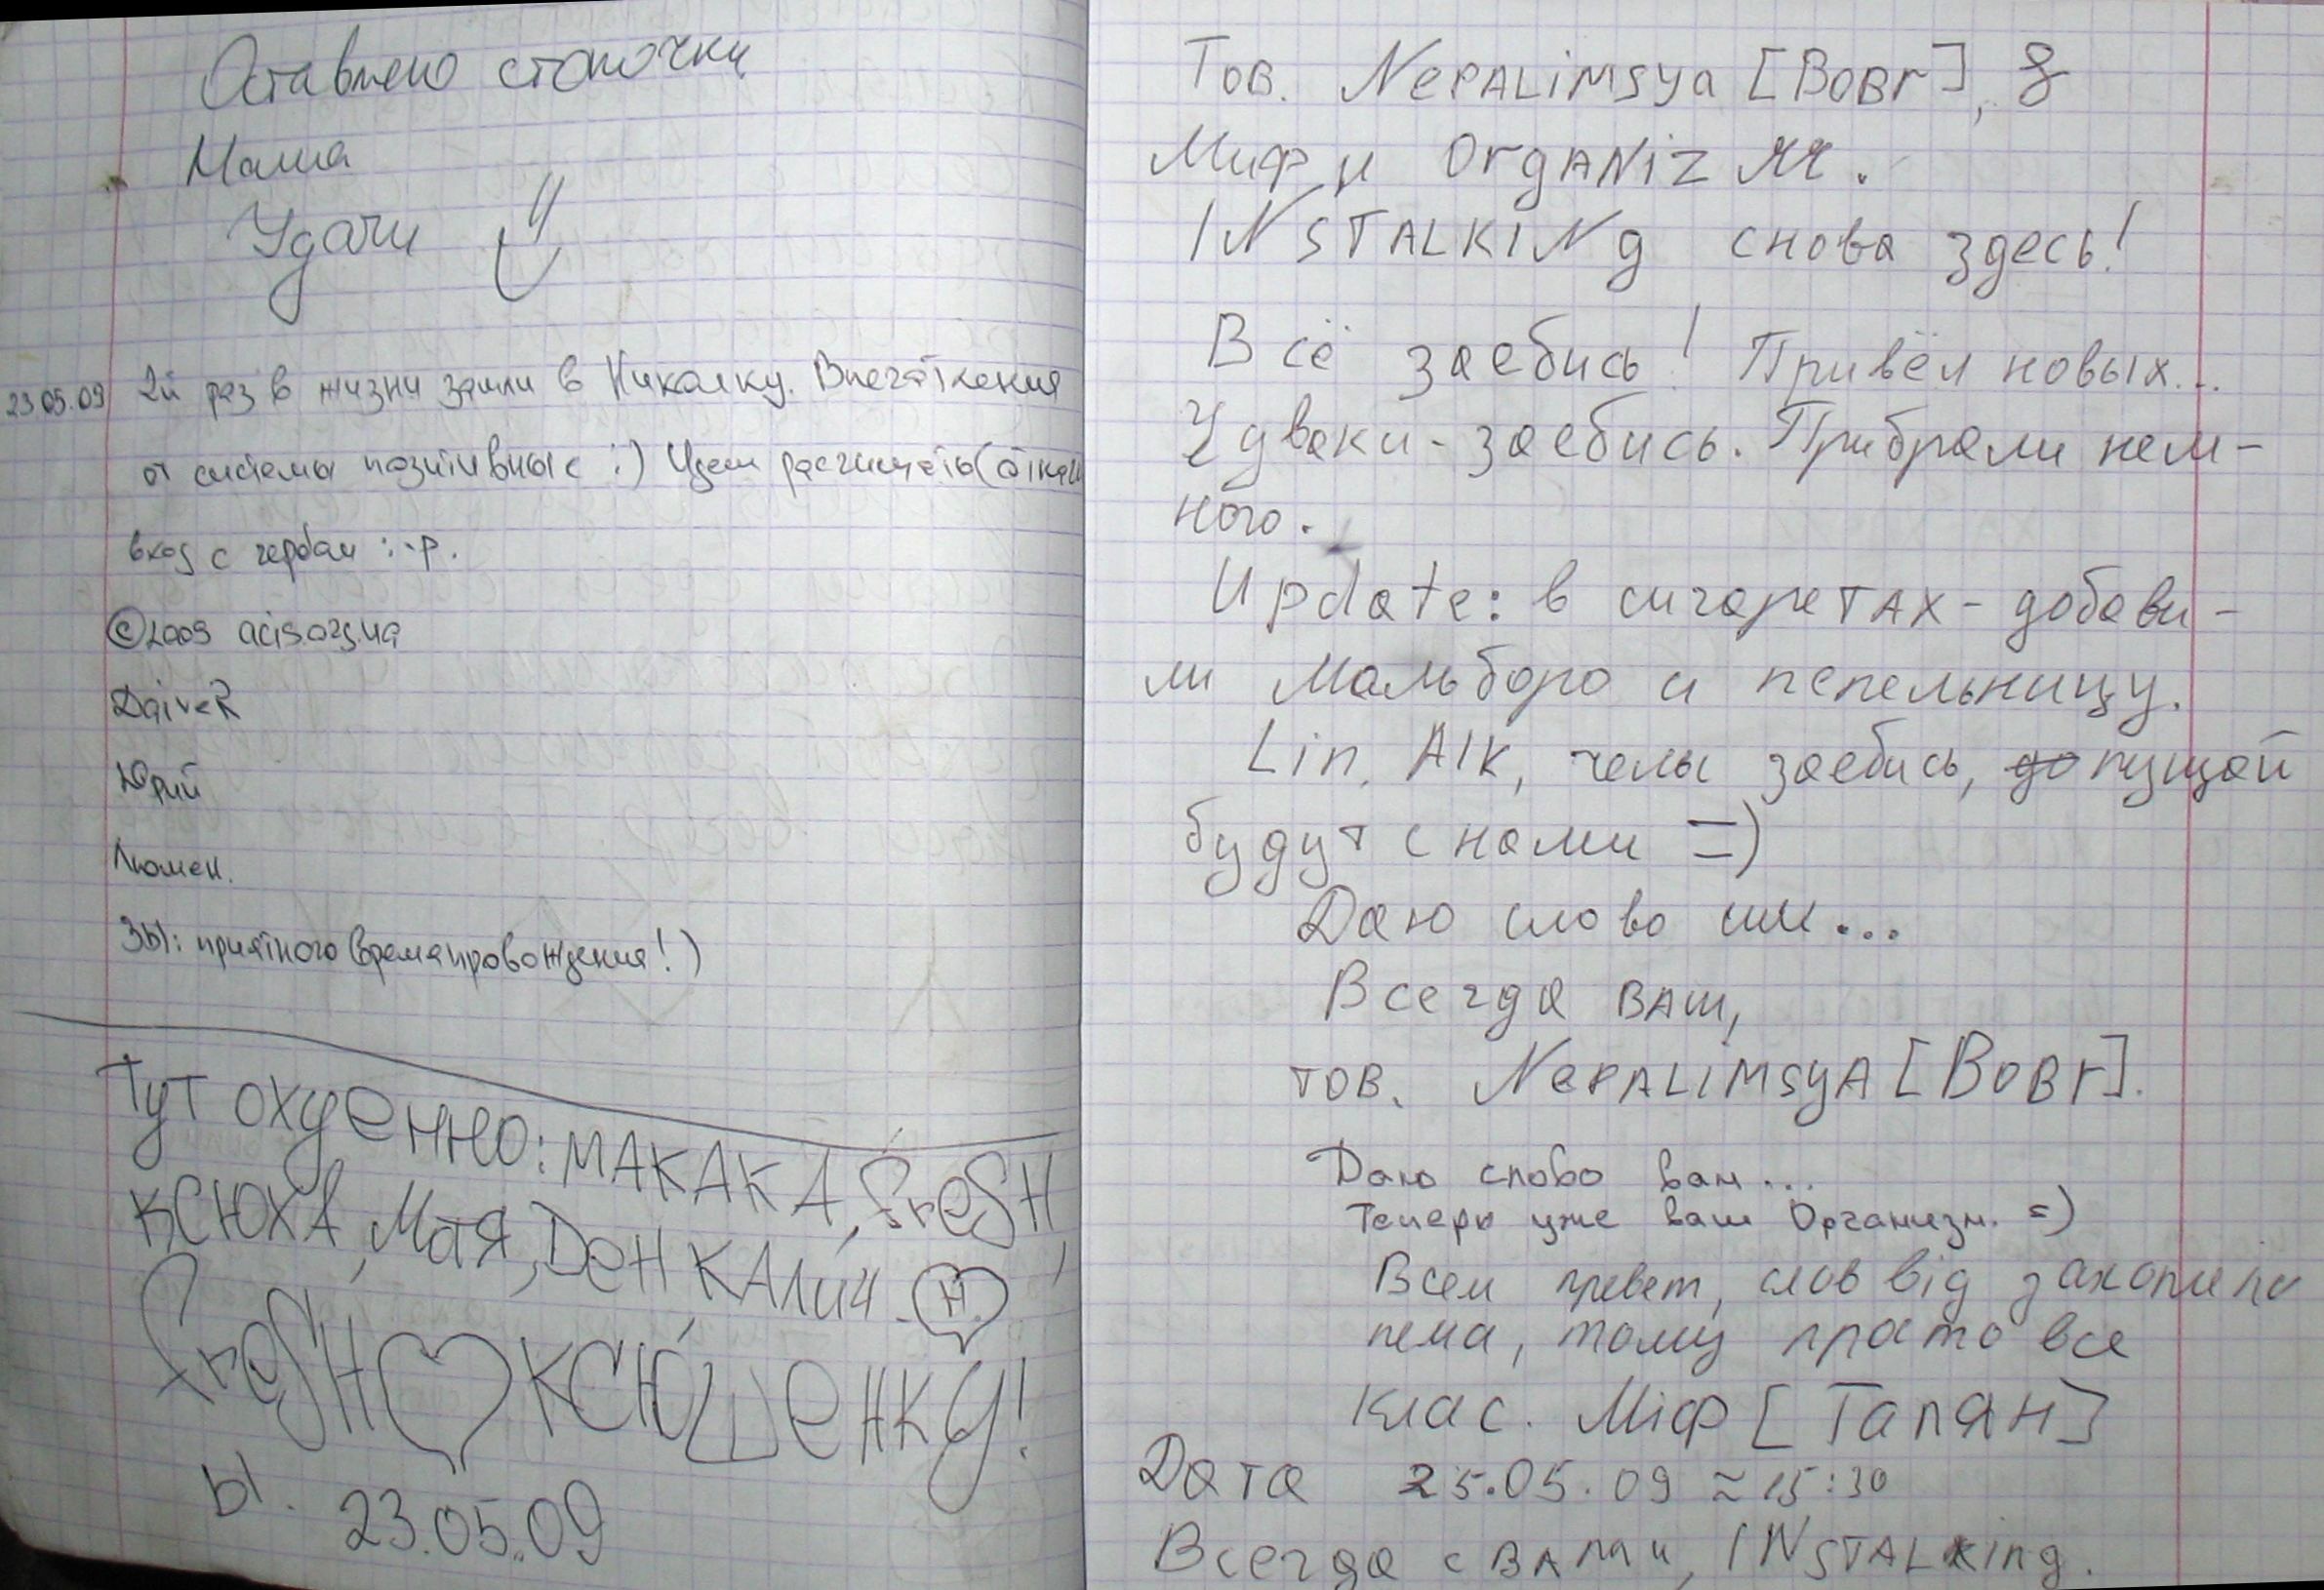 Оставлено стопочки
Маша
Удачи
23.05.09 2й раз в жизни зашли в Николку. Впечатления
от системы позитивные :) Идем расчищать(
вход с гербом :-p.
©2009 acis.org.ua
DaiveR
Юрий
Люмен.
ЗЫ: приятного времяпровождения!)
Тут охуенно: МАКАКА, freSH,
КСЮХА, МотЯ, Ден КАлич. Н.
freSH ♡ КСЮшенку!
Ы. 23.05.09
Тов. NePALiMSya [BoBr], &
Миф и OrgANiZM.
INSTALKINg снова здесь!
Всё заебись! Привёл новых...
Чуваки-заебись. Прибрали нем-
ного.
Update: в сигаретах - добави-
ли Мальборо и пепельницу.
Lin, Alk, челы заебись, пущай
будут с нами =)
Даю слово им...
Всегда ваш,
тов. NePALiMSyA [BoBr].
Даю слово вам...
Теперь уже ваш Организм. =)
Всем превет, слов від
нема, тому просто все
клас. Міф [Тапян]
Дата 25.05.09 ≈ 15:30
Всегда с вами, INSTALking.